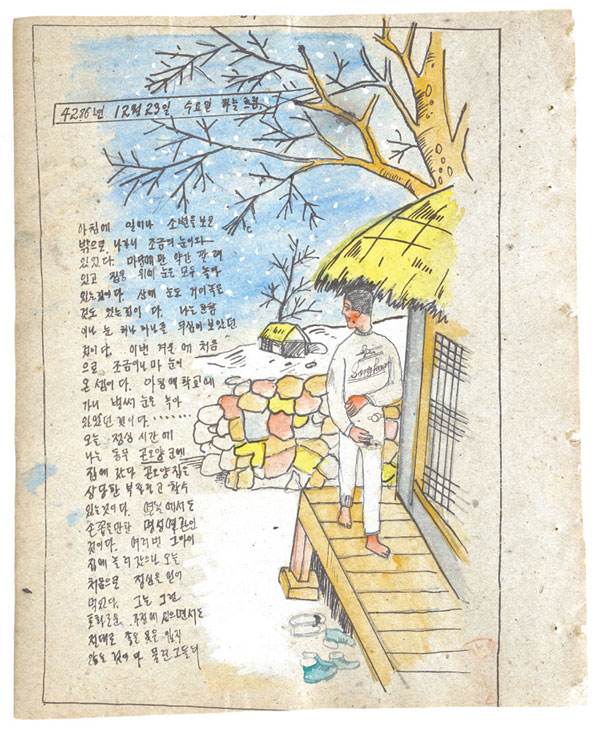 4286년 12月23일 수요일 하늘 흐림
아침에 일어나 소변을 보고
밖으로 나가니 조금의 눈이와
있었다. 마당에만 약간 깔려
있고 집웅 위의 눈은 모두 녹아
있는것이다. 산에 눈도
것도 있는것이다. 나는
눈 하나 하나를 보았던
것이다. 이번 겨울에 처음
으로 조금이나마 눈이
온 셈이다. 아침에 학교에
가니 벌써 눈은 녹아
있었던 것이다.........
오늘 점심 시간에
나는 동무 군에
집에 갔다 집은
상당한 부자라고 할수
있는것이다. 에서도
손꼽을만한
것이다. 여러번 그아이
집에 놀러 갔으나 오늘
처음으로 점심을 얻어
먹었다. 그는 그런
가정에 있으면서도
절대로 좋은 옷을 입지
않는 것이다. 물론 그들의